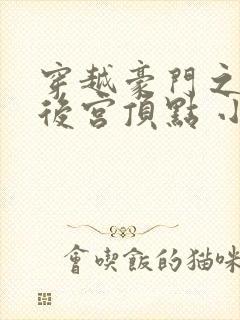 穿越豪門之
後宮頂點 小
會喫飯的猫咪